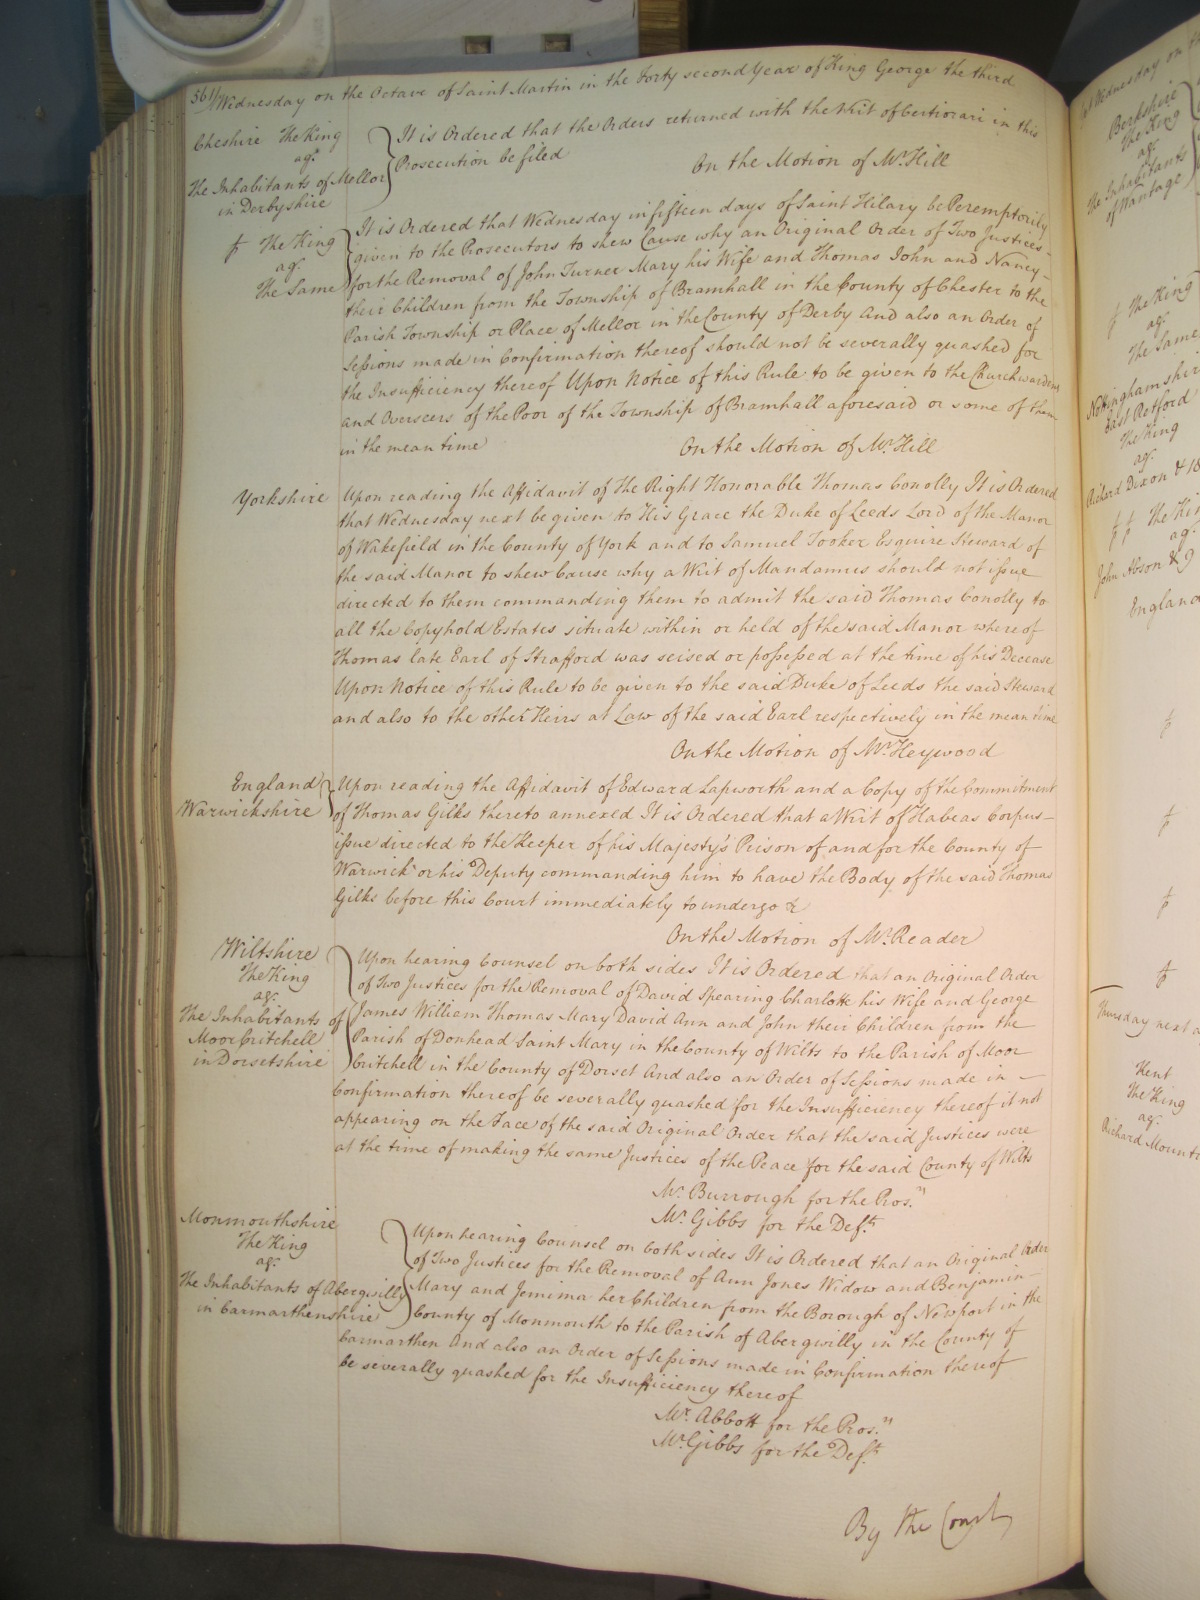 561 Wednesday on the Octave of Saint Martin in the Forty second Year of King George the third
Cheshire The King
agt.
The Inhabitants of Mellor
in Derbyshire
It is Ordered that the Orders returned with the Writ of Certiorari in this
Prosecution be filed
On the Motion of Mr. Hill
The King
agt.
The Same
It is Ordered that Wednesday in fifteen days of Saint Hilary be Peremptorily
given to the Prosecutors to shew Cause why an Original Order of Two Justices
for the Removal of John Turner Mary his Wife and Thomas John and Nancy
their Children from the Township of Bramhall in the County of Chester to the
Parish Township or Place of Mellor in the County of Derby And also an Order of
Sessions made in Confirmation thereof should not be severally quashed for
the Insufficiency thereof Upon Notice of this Rule to be given to the Churchwardens
and Overseers of the Poor of the Township of Bramhall aforesaid or some of them
in the mean time
On the Motion of Mr. Hill
Yorkshire
Upon reading the Affidavit of The Right Honorable Thomas Conolly It is Ordered
that Wednesday next be given to His Grace the Duke of Leeds Lord of the Manor
of Wakefield in the County of York and to Samuel Tooker Esquire Steward of
the said Manor to shew Cause why a Writ of Mandamus should not issue
directed to them commanding them to admit the said Thomas Conolly to
all the Copyhold Estates situate within or held of the said Manor whereof
Thomas late Earl of Strafford was seised or possessed at the time of his Decease
Upon Notice of this Rule to be given to the said Duke of Leeds the said Steward
and also to the other Heirs at Law of the said Earl respectively in the mean time
On the Motion of Mr. Heywood
England
Warwickshire
Upon reading the Affidavit of Edward Lapworth and a Copy of the Commitment
of Thomas Gilks thereto annexed It is Ordered that a Writ of Habeas Corpus
issue directed to the Keeper of his Majesty's Prison of and for the County of
Warwick or his Deputy commanding him to have the Body of the said Thomas
Gilks before this Court immediately to undergo &
On the Motion of Mr. Reader
Wiltshire
The King
agt.
The Inhabitants of
Moor Critchell
in Dorsetshire
Upon hearing Counsel on both sides It is Ordered that an Original Order
of Two Justices for the Removal of David Spearing Charlotte his Wife and George
James William Thomas Mary David Ann and John their Children from the
Parish of Donhead Saint Mary in the County of Wilts to the Parish of Moor
Critchell in the County of Dorset And also an Order of Sessions made in
Confirmation thereof be severally quashed for the Insufficiency thereof it not
appearing on the Face of the said Original Order that the said Justices were
at the time of making the same Justices of the Peace for the said County of Wilts
Mr. Burrough for the Pros.n
Mr. Gibbs for the Def.t
Monmouthshire
The King
agt.
The Inhabitants of Abergwilly
in Carmarthenshire
Upon hearing Counsel on both sides It is Ordered that an Original Order
of Two Justices for the Removal of Ann Jones Widow and Benjamin
Mary and Jemima her Children from the Borough of Newport in the
County of Monmouth to the Parish of Abergwilly in the County of
Carmarthen And also an Order of Sessions made in Confirmation thereof
be severally quashed for the Insufficiency thereof
Mr. Abbott for the Pros.n
Mr. Gibbs for the Def.t
By the Court
Wednesday on
Berkshire
The King
agt.
The Inhabitants
of Wantage
The King
agt.
The Same
Nottinghamshire
East Retford
The King
agt.
Richard Dixon & 18
The Kin
agt.
John Abson & 9
England
Thursday next a
Kent
The King
agt.
Richard Mount